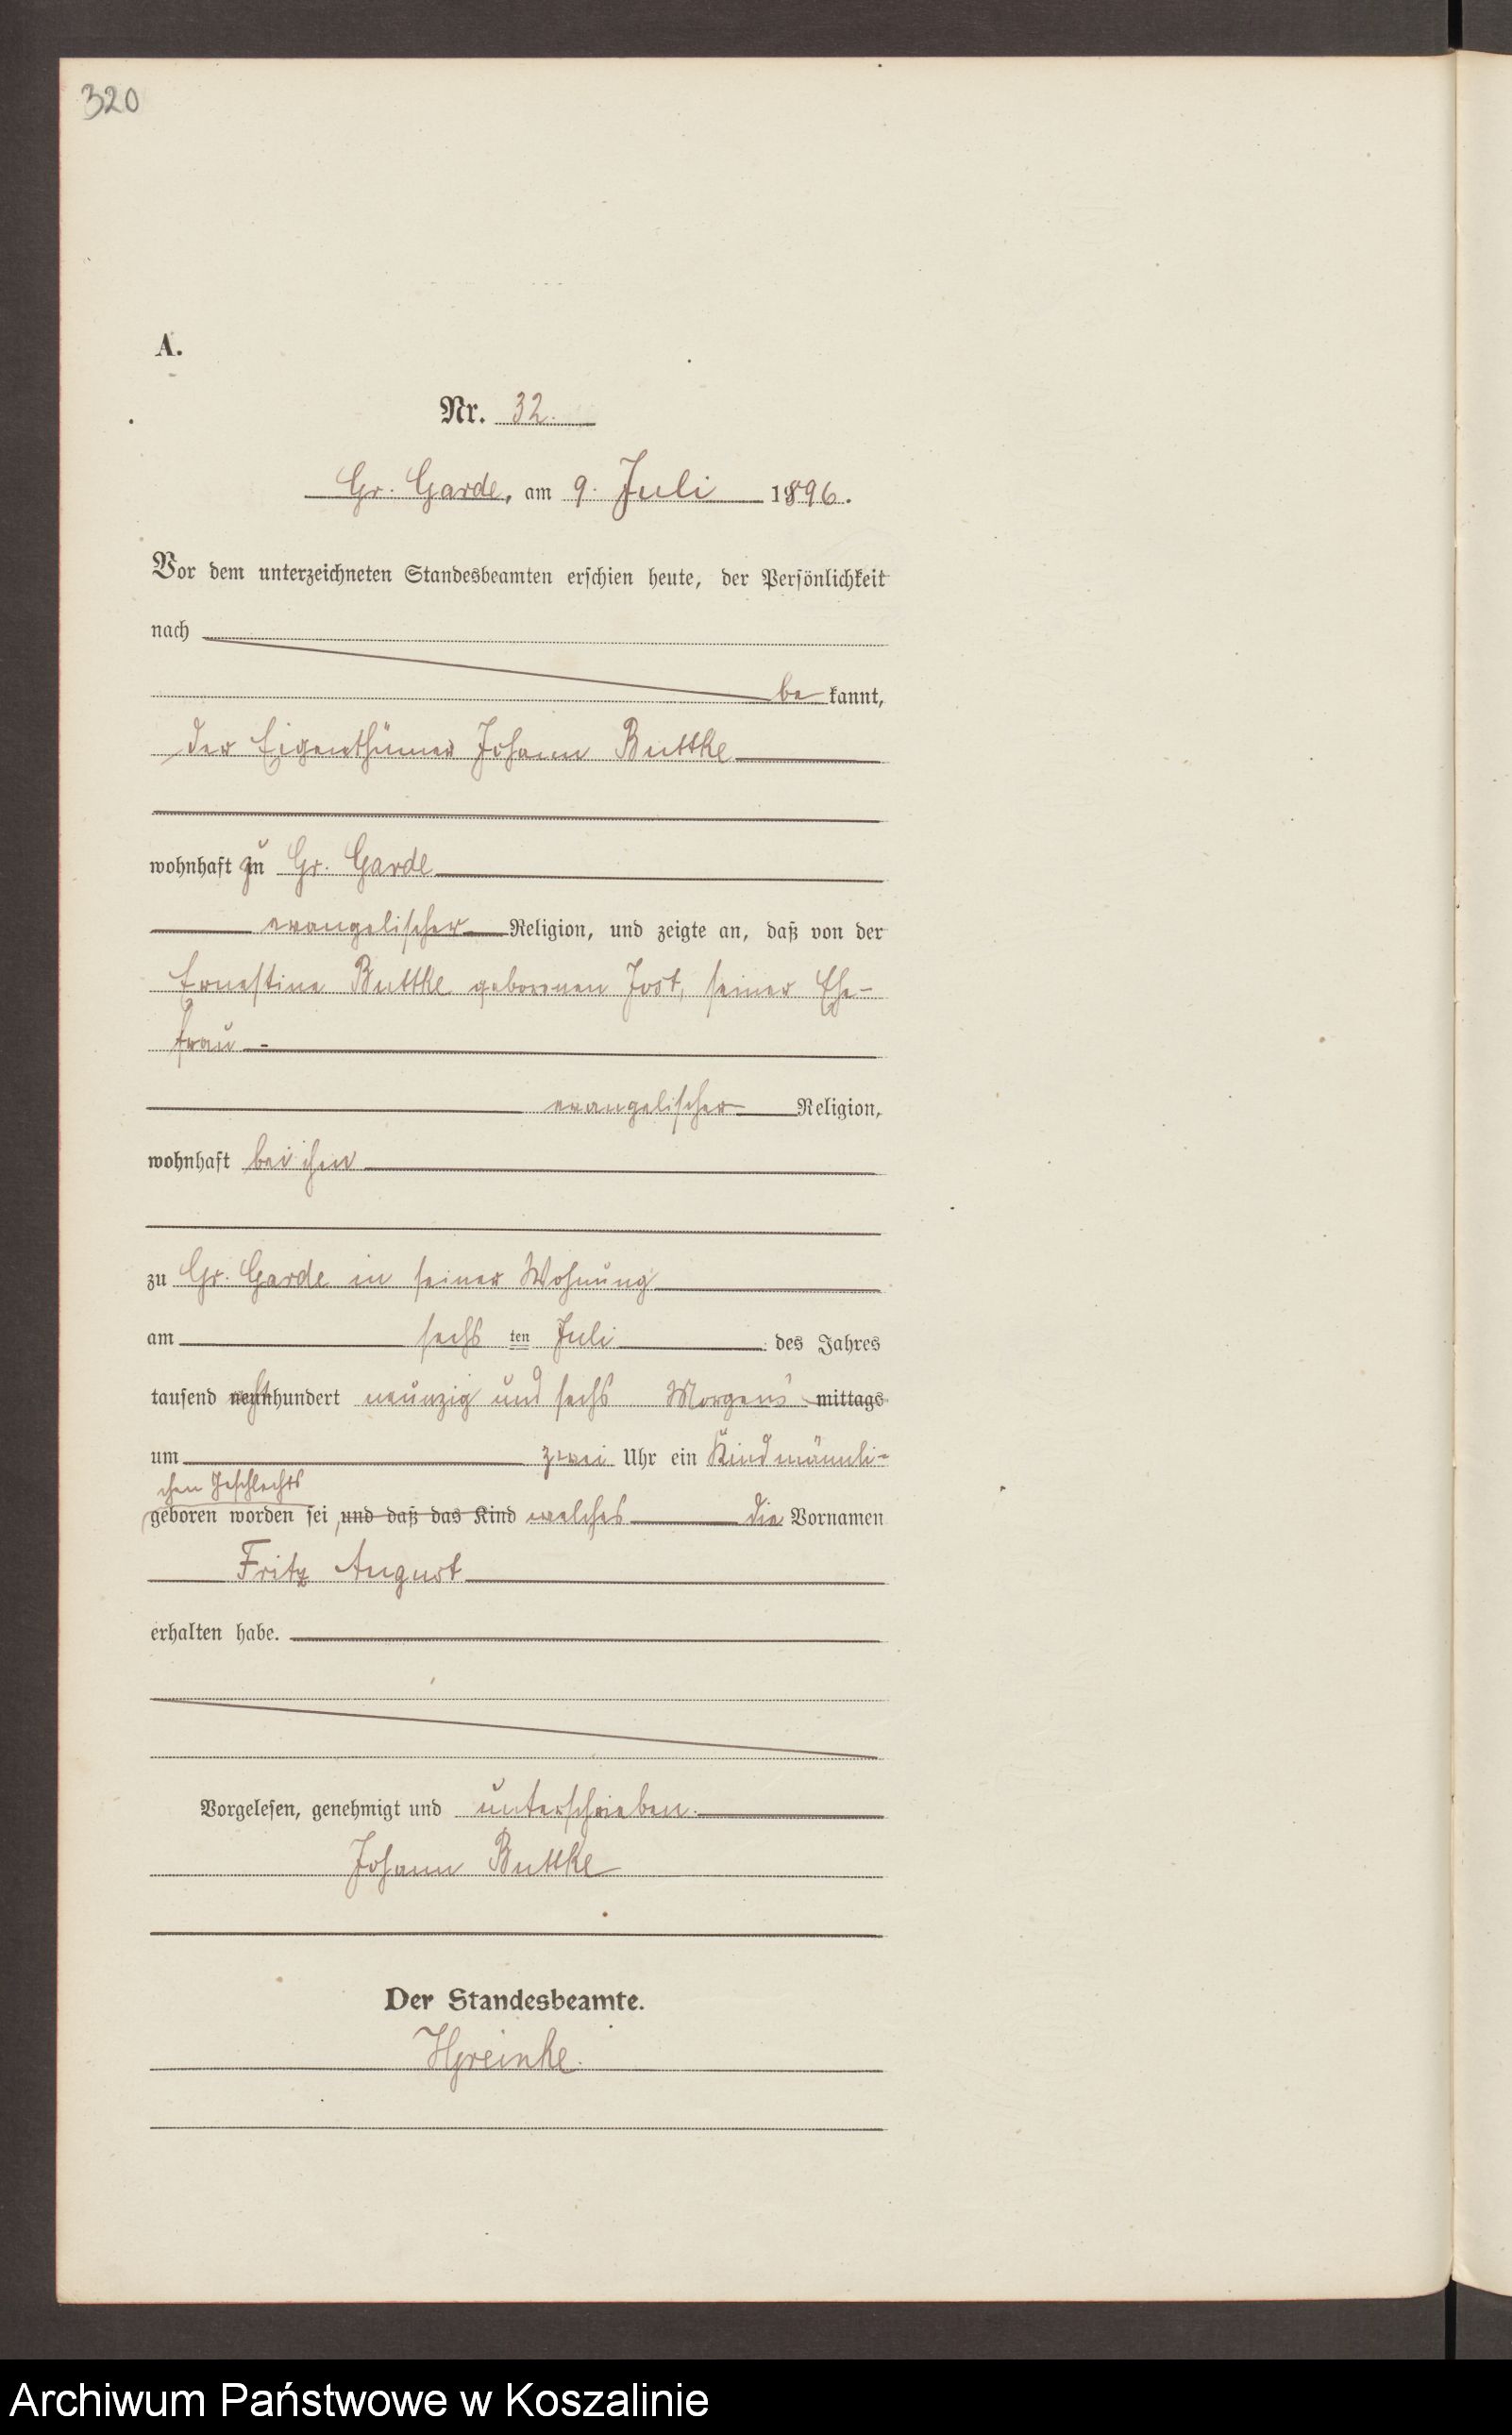 320
A.
Nr. 32.
Gr. Garde, am 9. Juli 1896.
Vor dem unterzeichneten Standesbeamten erschien heute, der Persönlichkeit
nach
be kannt,
der Eigenthümer Johann Buttke
wohnhaft zu Gr. Garde
evangelischer Religion, und zeigte an, daß von der
Ernestine Buttke geborenen Jost, seiner Ehe-
frau -
evangelischer Religion,
wohnhaft bei ihm
zu Gr. Garde in seiner Wohnung
am sechs ten Juli des Jahres
tausend acht hundert neunzig und sechs Morgens mittags
um zwei Uhr ein Kind männli-
chen Geschlechts
geboren worden sei, und daß das Kind welches die Vornamen
Fritz August
erhalten habe.
Vorgelesen, genehmigt und unterschrieben.
Johann Buttke
Der Standesbeamte.
Archiwum Państwowe w Koszalinie